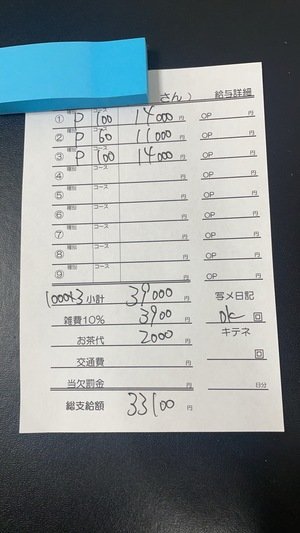 さん) 給与詳細
① 種別 P コース 100 14000円 OP 円
② 種別 P コース 60 11000円 OP 円
③ 種別 P コース 100 14000円 OP 円
④ 種別 コース 円 OP 円
⑤ 種別 コース 円 OP 円
⑥ 種別 コース 円 OP 円
⑦ 種別 コース 円 OP 円
⑧ 種別 コース 円 OP 円
⑨ 種別 コース 円 OP 円
1000×3 小計 39000円 写メ日記
雑費10% 3900円 ok 回
お茶代 2000円 キテネ
交通費 円 回
当欠罰金 円 日分
総支給額 33100円